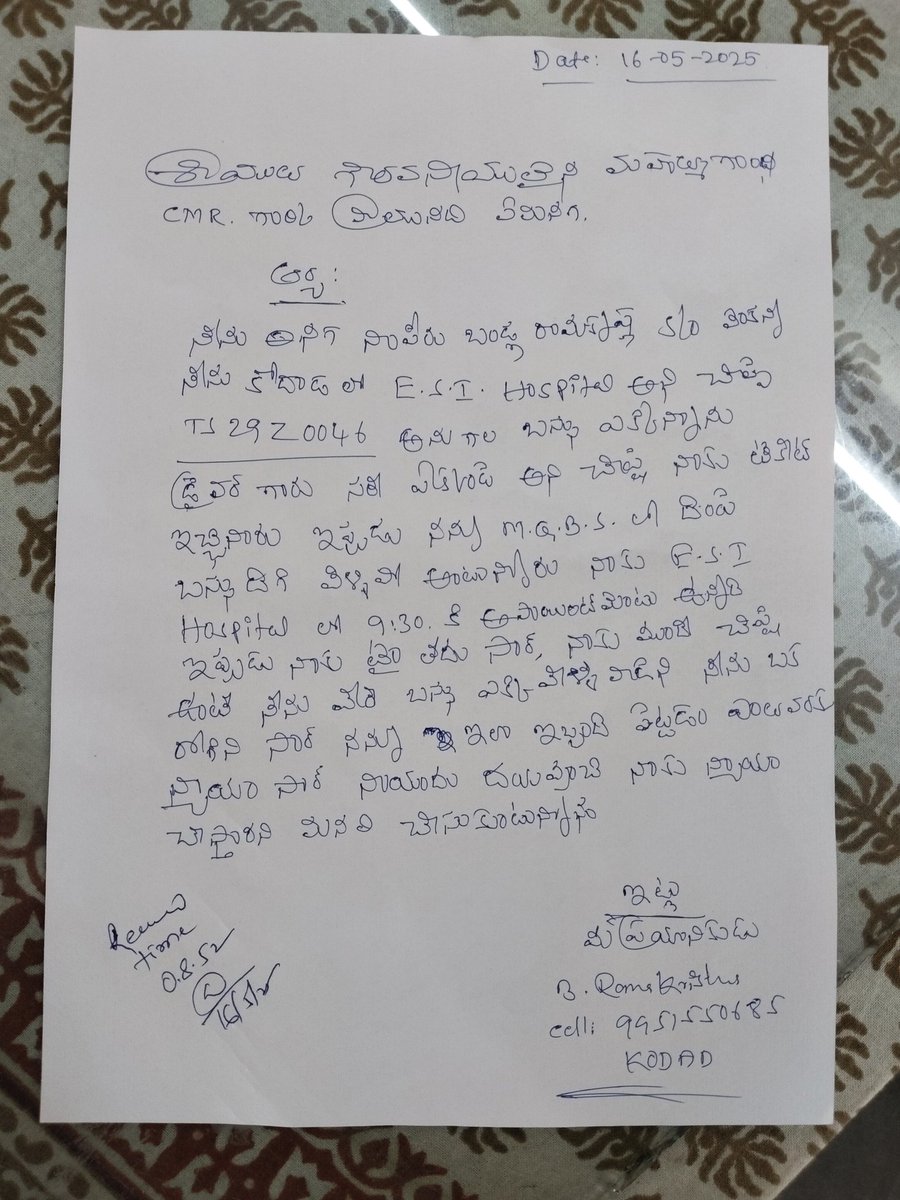 Date: 16-05-2025
శ్రీయుత గౌరవనీయులైన మహాత్మాగాంధి
CMR. గారికి
ఆర్య:
నేను అనగా నాపేరు బండ్ల రామకృష్ణ S/o వెంకన్న
నేను కోదాడ లో E.S.I. Hospital అని చెప్పి
TS 29 Z 0046 అను గల బస్సు ఎక్కిన్నాను
డ్రైవర్ గారు సరే ఎక్కండి అని చెప్పి నాకు టికెట్
ఇచ్చినారు ఇప్పుడు నన్ను M.G.B.S. లో దింపి
బస్సు దిగి వెళ్ళిపో అంటున్నారు నాకు E.S.I
Hospital లో 9:30. కి అపాయింట్‌మెంటు ఉన్నది
ఇప్పుడు నాకు టైం లేదు సార్, నాకు ముందే చెప్పి
ఉంటే నేను వేరే బస్సు ఎక్కి వెళ్ళేవాడిని నేను ఒక
రోగిని సార్ నన్ను ఇలా ఇబ్బంది పెట్టడం ఎంతవరకు
న్యాయం సార్ నాయందు దయవుంచి నాకు న్యాయం
చేస్తారని మనవి చేసుకుంటున్నాను
ఇట్లు
మీ ప్రయాణికుడు
B. Rama Krishna
cell: 9951550685
KODAD
time
0.8.52
16/5/25